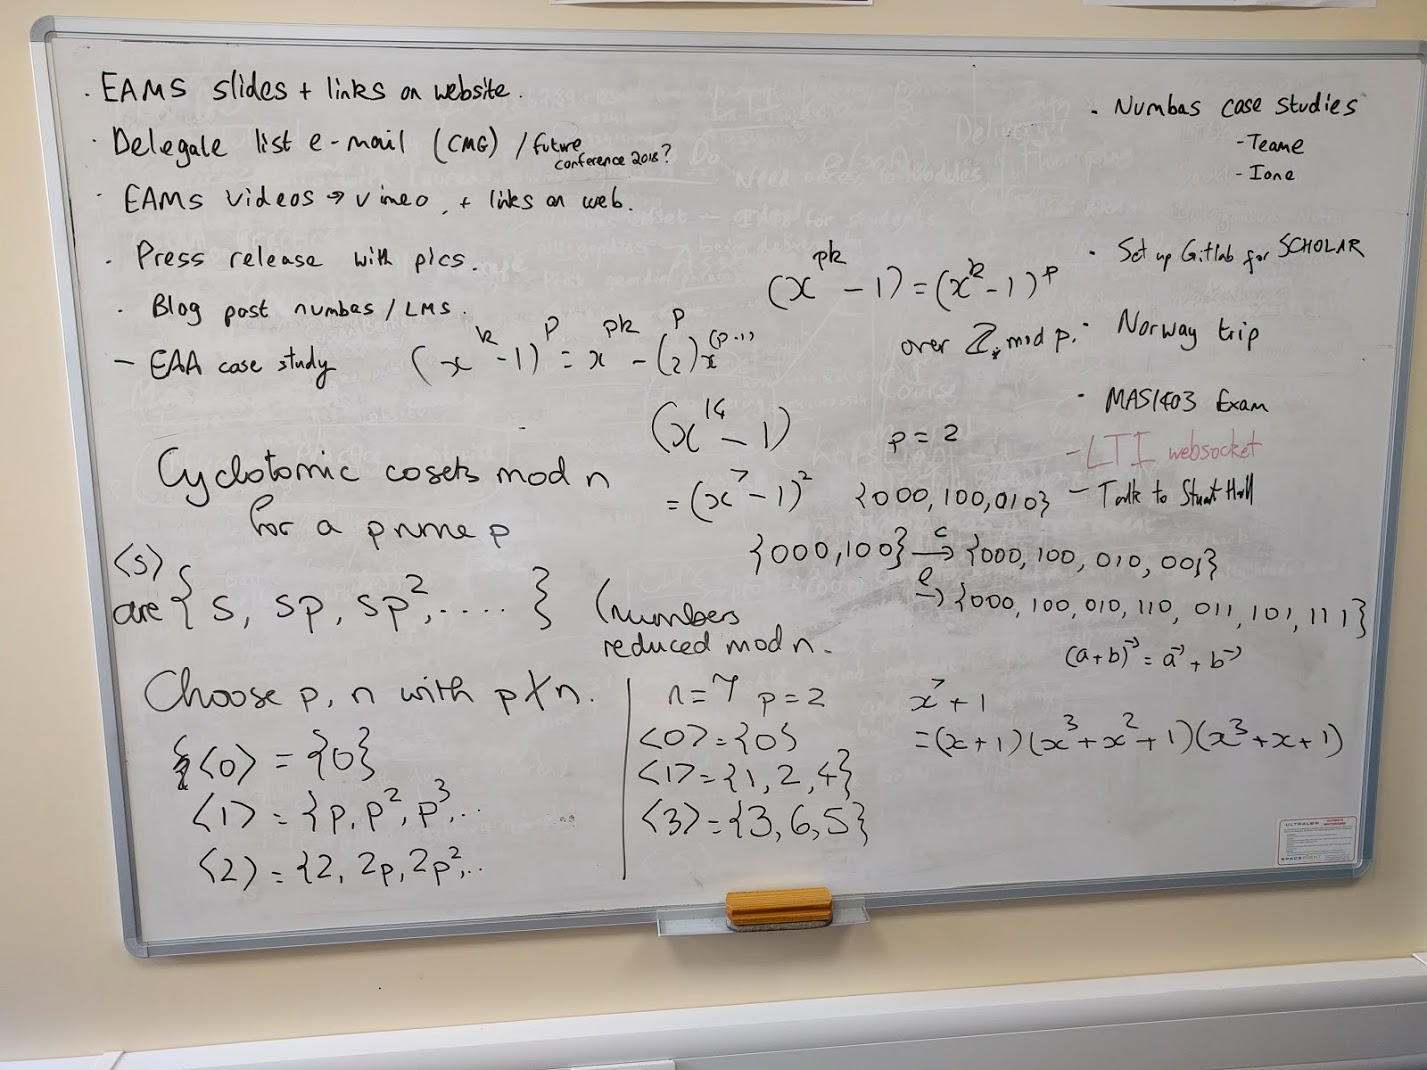 · EAMS slides + links on website.
· Delegate list e-mail (CMG) / future conference 2018?
· EAMS videos → vimeo, + links on web.
· Press release with pics.
· Blog post numbas / LMS.
- EAA case study
· Numbas case studies
- Teame
- Ione
· Set up Gitlab for SCHOLAR
· Norway trip
· MAS1403 Exam
- LTI websocket
- Talk to Stuart Hall
(x^pk - 1) = (x^k - 1)^p
over ℤ, mod p.
(x^k - 1)^p = x^pk - (p 2) x^(p-1)
(x^14 - 1)
= (x^7 - 1)^2
p = 2
{000, 100, 010}
{000, 100} →^c {000, 100, 010, 001}
→^l {000, 100, 010, 110, 011, 101, 111}
(a+b)^→ = a^→ + b^→
Cyclotomic cosets mod n
for a prime p
<s>
are {s, sp, sp^2, .... } (numbers
reduced mod n.
Choose p, n with p∤n.
<0> = {0}
<1> = {p, p^2, p^3, ..
<2> = {2, 2p, 2p^2, ..
n=7 p=2
<0> = {0}
<1> = {1, 2, 4}
<3> = {3, 6, 5}
x^7 + 1
= (x+1)(x^3+x^2+1)(x^3+x+1)